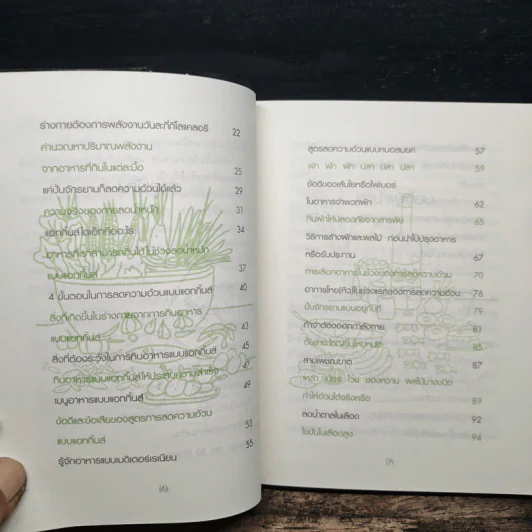 ร่างกายต้องการพลังงานวันละกี่กิโลแคลอรี 22
คำนวณหาปริมาณพลังงาน
จากอาหารที่กินในแต่ละมื้อ 25
แค่ปั่นจักรยานก็ลดความอ้วนได้แล้ว 29
ความจริงของการลดน้ำหนัก 31
แอทกินส์ไดเอ็ทคืออะไร 34
อาหารที่เราสามารถกินได้ในช่วงลดน้ำหนัก
แบบแอทกิ้นส์ 37
4 ขั้นตอนในการลดความอ้วนแบบแอทกิ้นส์ 40
สิ่งที่เกิดขึ้นในร่างกายจากการกินอาหาร
แบบแอทกิ้นส์ 43
สิ่งที่ต้องระวังในการกินอาหารแบบแอทกิ้นส์ 45
กินอาหารแบบแอทกิ้นส์ให้ประสบความสำเร็จ 47
เมนูอาหารแบบแอทกิ้นส์ 49
ข้อดีและข้อเสียของสูตรการลดความอ้วน
แบบแอทกิ้นส์ 53
รู้จักอาหารแบบเมดิเตอร์เรเนียน 55
(6)
สูตรลดความอ้วนแบบหมอสมยศ 57
ผัก ผัก ผัก ปลา ปลา ปลา 59
ข้อดีของเส้นใยหรือไฟเบอร์
ในอาหารจำพวกผัก 62
กินผักให้ปลอดภัยจากสารพิษ 65
วิธีการล้างผักและผลไม้ ก่อนนำไปปรุงอาหาร
หรือรับประทาน 67
การเลือกอาหารในช่วงของการลดความอ้วน 70
อาการโหย(หิว)ในช่วงแรกของการลดความอ้วน 76
ปั่นจักรยานแบบอยู่กับที่ 79
ถ้าจำต้องออกกำลังกาย 81
ต้นขาจะใหญ่ขึ้นไหมหนอ 85
สามเพื่อนยาก 87
เหล้า เบียร์ ไวน์ ของหวาน ผลไม้บางชนิด
ทำให้อ้วนได้จริงหรือ 89
ลดน้ำตาลในเลือด 92
ไขมันในเลือดสูง 94
(7)